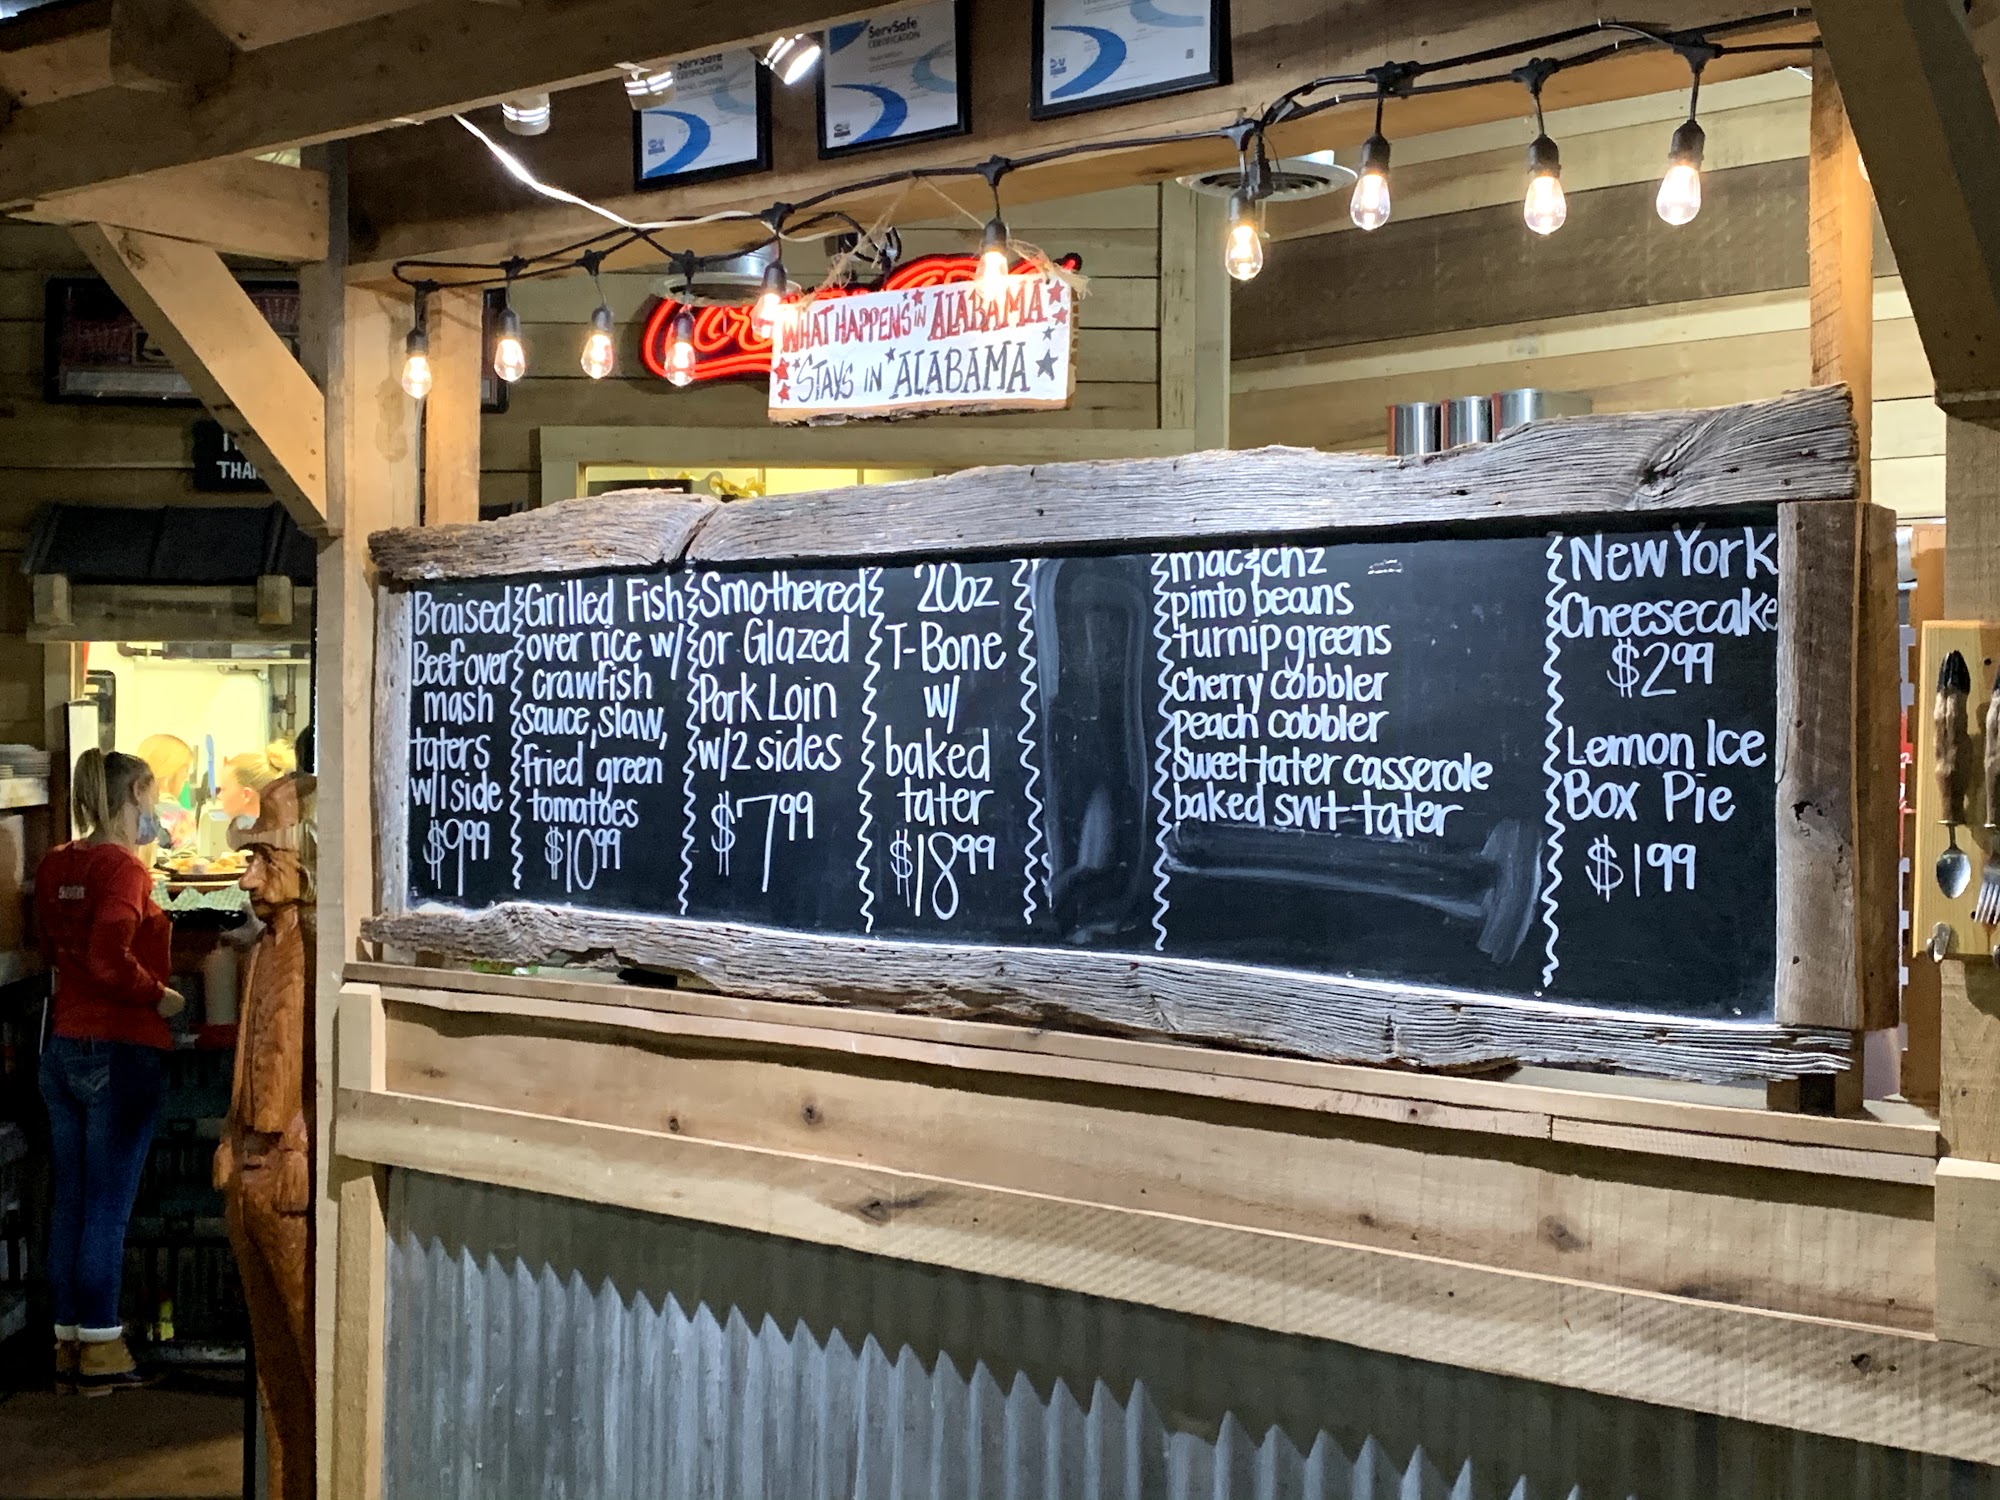 ServSafe
CERTIFICATION
ServSafe
CERTIFICATION
WHAT HAPPENS IN ALABAMA
STAYS IN ALABAMA
THAN
Braised
Beef over
mash
taters
w/1 side
$9.99
Grilled Fish
over rice w/
crawfish
sauce, slaw,
fried green
tomatoes
$10.99
Smothered
or Glazed
Pork Loin
w/2 sides
$7.99
20oz
T-Bone
w/
baked
tater
$18.99
mac & chz
pinto beans
turnip greens
cherry cobbler
peach cobbler
sweet tater casserole
baked swt tater
New York
Cheesecake
$2.99
Lemon Ice
Box Pie
$1.99